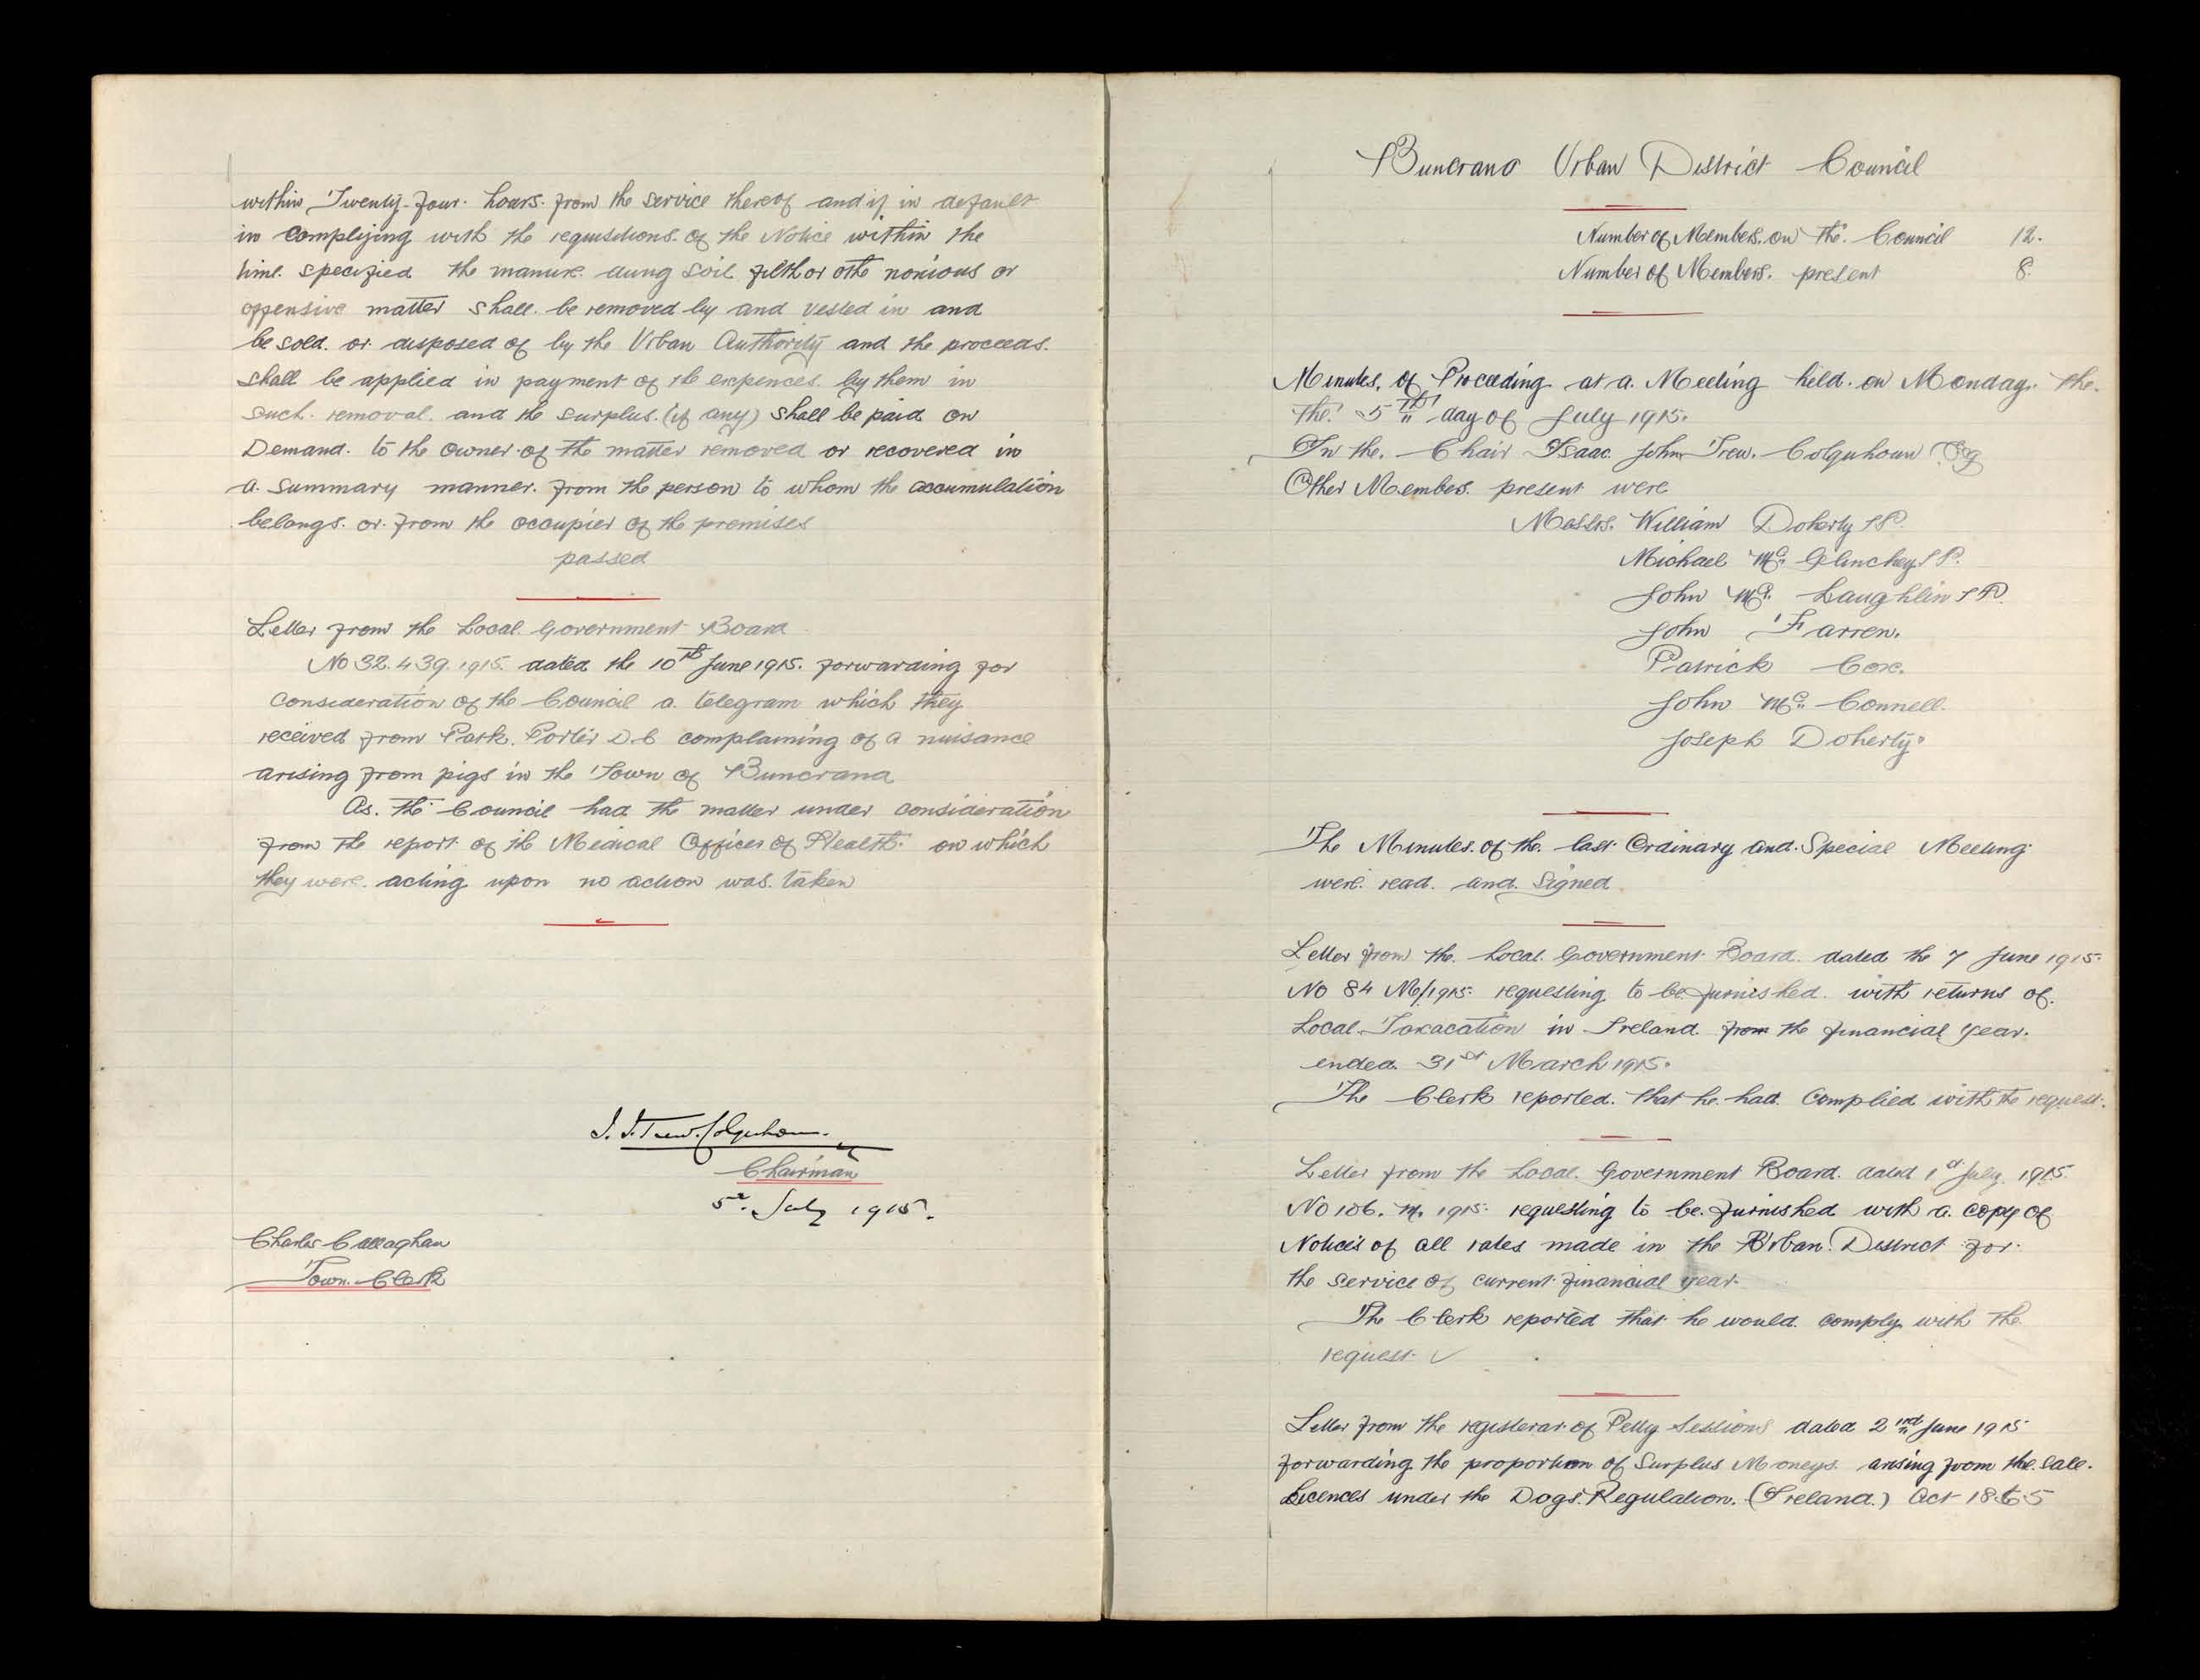 within Twenty-four hours from the service thereof and if in default
in complying with the requisitions of the Notice within the
time specified the manure dung soil filth or othe noxious or
offensive matter shall be removed by and vested in and
be sold or disposed of by the Urban Authority and the proceeds
shall be applied in payment of the expences by them in
such removal and the surplus (if any) shall be paid on
Demand to the owner of the matter removed or recovered in
a summary manner from the person to whom the accumulation
belongs or from the occupier of the premises
passed
Letter from the Local Government Board
No 32.439.1915 dated the 10th June 1915 forwarding for
consideration of the Council a telegram which they
received from Park. Porter D.C complaining of a nuisance
arising from pigs in the Town of Buncrana
As the Council had the matter under consideration
from the report of the Medical Officer of Health on which
they were acting upon no action was taken
I. J. Trew. Colquhoun.
Chairman
5th July 1915.
Charles Callaghan
Town Clerk
Buncrana Urban District Council
Number of Members on the Council 12.
Number of Members present 8.
Minutes of Proceeding at a Meeting held on Monday the
the 5th day of July 1915.
In the Chair Isaac John Trew Colquhoun Esq
Other Members present were
Messrs. William Doherty J.P.
Michael Mc Glinchey J.P.
John Mc Laughlin J.P.
John Farren.
Patrick Cox.
John Mc Connell.
Joseph Doherty.
The Minutes of the last Ordinary and Special Meeting
were read and Signed
Letter from the Local Government Board dated the 7 June 1915
No 84 M/1915 requesting to be furnished with returns of
Local Taxacation in Ireland from the financial year
ended 31st March 1915.
The Clerk reported that he had complied with the request.
Letter from the Local Government Board dated 1st July 1915
No 106. M. 1915 requesting to be furnished with a copy of
Notices of all rates made in the Urban District for
the service of current financial year
The Clerk reported that he would comply with the
request
Letter from the registerar of Petty Sessions dated 2nd June 1915
forwarding the proportion of Surplus Moneys arising from the sale
Licences under the Dogs Regulation (Ireland) Act 1865